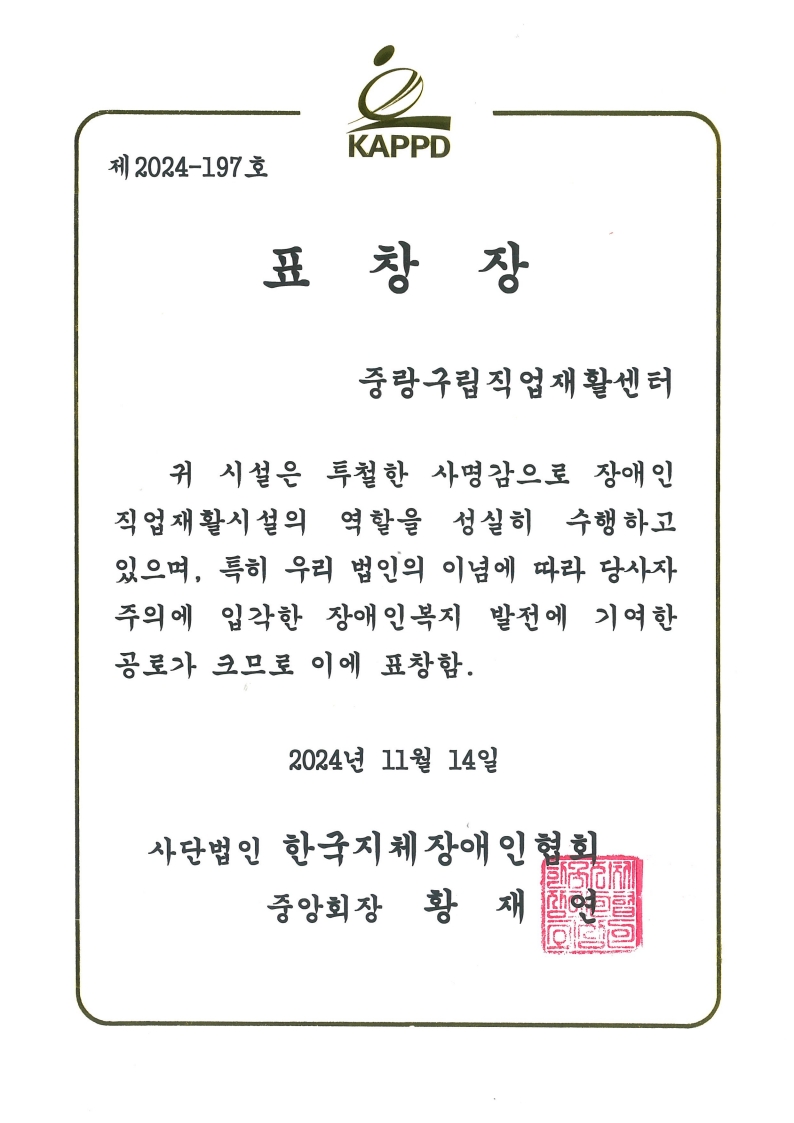 KAPPD
제2024-197호
표 창 장
중랑구립직업재활센터
귀 시설은 투철한 사명감으로 장애인
직업재활시설의 역할을 성실히 수행하고
있으며, 특히 우리 법인의 이념에 따라 당사자
주의에 입각한 장애인복지 발전에 기여한
공로가 크므로 이에 표창함.
2024년 11월 14일
사단법인 한국지체장애인협회
중앙회장 황 재 연